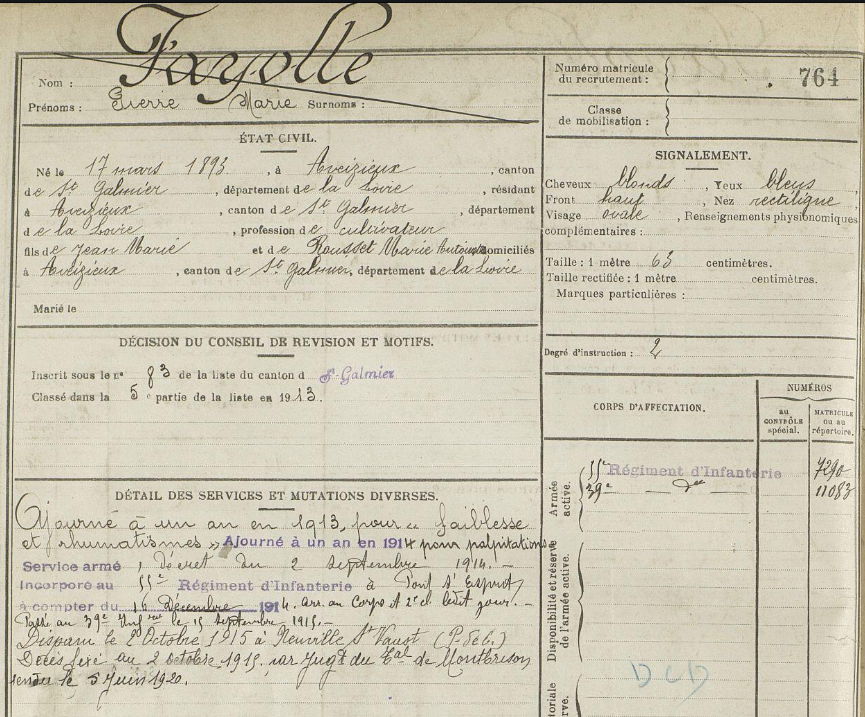 Nom : Fayolle
Prénoms : Pierre Marie Surnoms :
ÉTAT CIVIL.
Né le 17 mars 1893, à Aveizieux, canton
de St Galmier, département de la Loire, résidant
à Aveizieux, canton de St Galmier, département
de la Loire, profession de cultivateur
fils de Jean Marie et de Rousset Marie domiciliés
à Aveizieux, canton de St Galmier, département de la Loire
Marié le
DÉCISION DU CONSEIL DE REVISION ET MOTIFS.
Inscrit sous le n° 83 de la liste du canton d St Galmier
Classé dans la 5e partie de la liste en 1913.
DÉTAIL DES SERVICES ET MUTATIONS DIVERSES.
Ajourné à un an en 1913, pour « faiblesse
et rhumatismes » Ajourné à un an en 1914 pour palpitations
Service armé, Décret du 2 septembre 1914. –
Incorporé au 55e Régiment d'Infanterie à Pont St Esprit
à compter du 16 Décembre 1914. Arr. au Corps et 2e cl ledit jour. –
Passé au 39e Infrie le 15 septembre 1915. –
Disparu le 2 Octobre 1915 à Neuville St Vaast (P. de C.)
Décès fixé au 2 octobre 1915, par Jugt du Tal de Montbrison
rendu le 5 Juin 1920.
Numéro matricule
du recrutement : 764
Classe
de mobilisation :
SIGNALEMENT.
Cheveux blonds, Yeux bleus
Front haut, Nez rectiligne,
Visage ovale, Renseignements physionomiques
complémentaires :
Taille : 1 mètre 63 centimètres.
Taille rectifiée : 1 mètre centimètres.
Marques particulières :
Degré d'instruction : 2
CORPS D'AFFECTATION.
NUMÉROS
au
CONTRÔLE
spécial.
MATRICULE
ou au
répertoire.
Armée
active.
55e Régiment d'Infanterie 7290
39e — do — 11083
Disponibilité et réserve
de l'armée active.
DCD
toriale
rve.